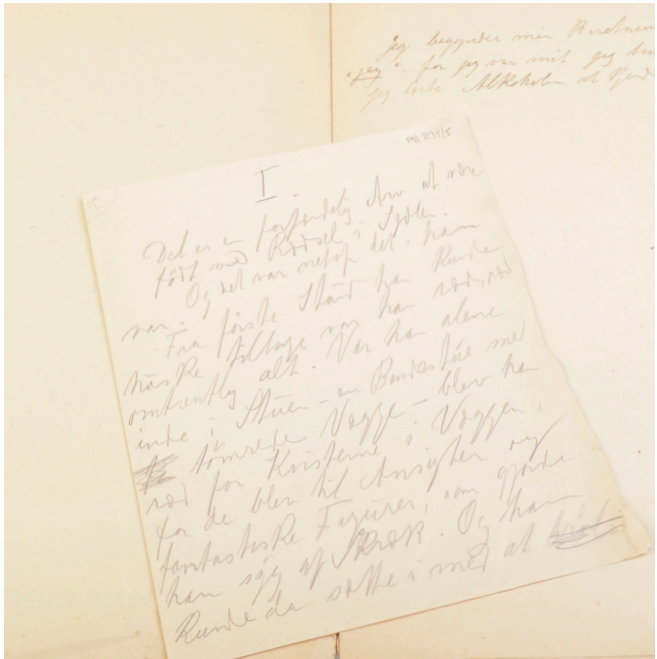 Jeg begynder min
"jeg" for jeg var mit jeg
jeg Alkoholen at
I.
Det er en forfærdelig Arv at være
født med Rædsel i Sjælen.
Og det var netop det, han
var.
Fra første Stund han kunde
huske tilbage var han ræd, ræd
omtrentlig alt. Var han alene
inde i Stuen - en Bondestue med
tømrede Vægge - blev han
ræd for Kvisterne i Væggen,
for de blev til Ansigter og
fantastiske Figurer, som gjorde
ham syg af Skræk. Og han
kunde da sætte i med at